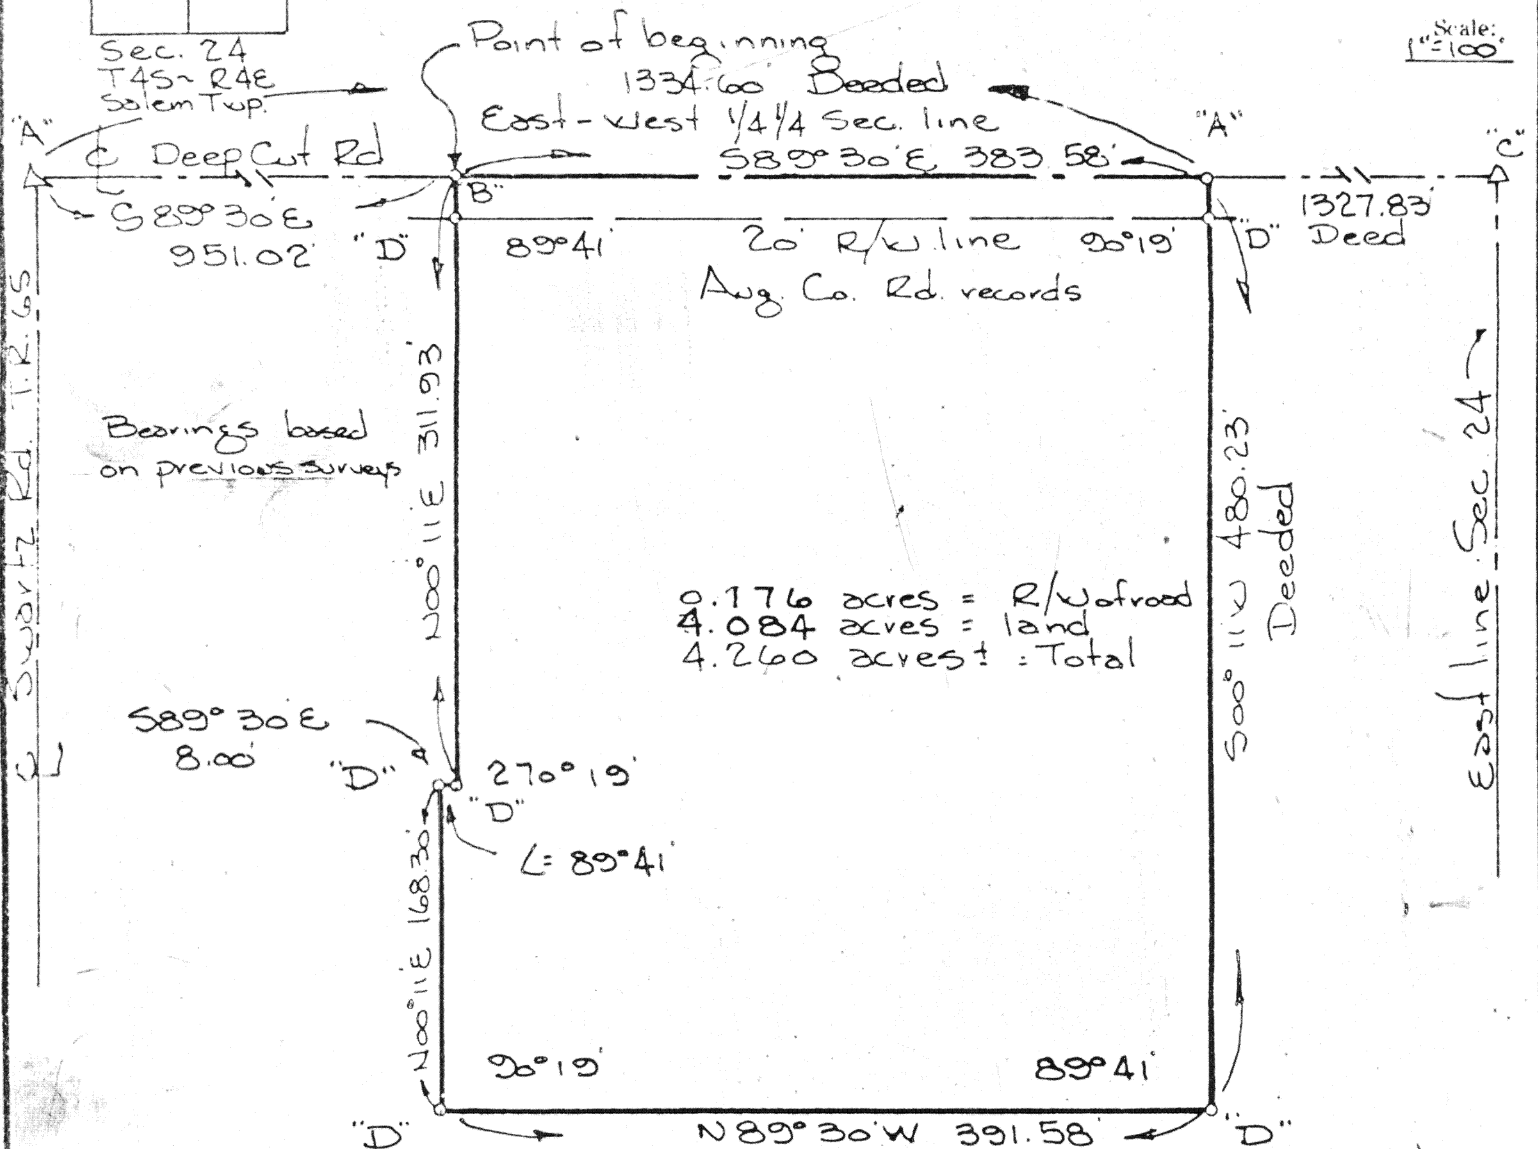 Scale:
1"=100'
Sec. 24
T4S~ R4E
Salem Twp.
Point of beginning
1334.60' Deeded
East-West 1/4 1/4 Sec. line
"A"
"A"
"C"
℄ Deep Cut Rd
S89° 30' E 383.58'
"B"
S 89° 30' E
951.02'
"D"
89° 41'
20' R/W line
90° 19'
"D"
1327.83'
Deed
Aug. Co. Rd. records
℄ Swartz Rd. T.R. 65
Bearings based
on previous surveys
N00° 11' E 311.93'
S00° 11' W 480.23'
Deeded
East line Sec. 24
0.176 acres = R/W of road
4.084 acres = land
4.260 acres± = Total
S89° 30' E
8.00'
"D"
270° 19'
"D"
∠= 89° 41'
N00° 11' E 168.30'
90° 19'
89° 41'
"D"
N 89° 30' W 391.58'
"D"